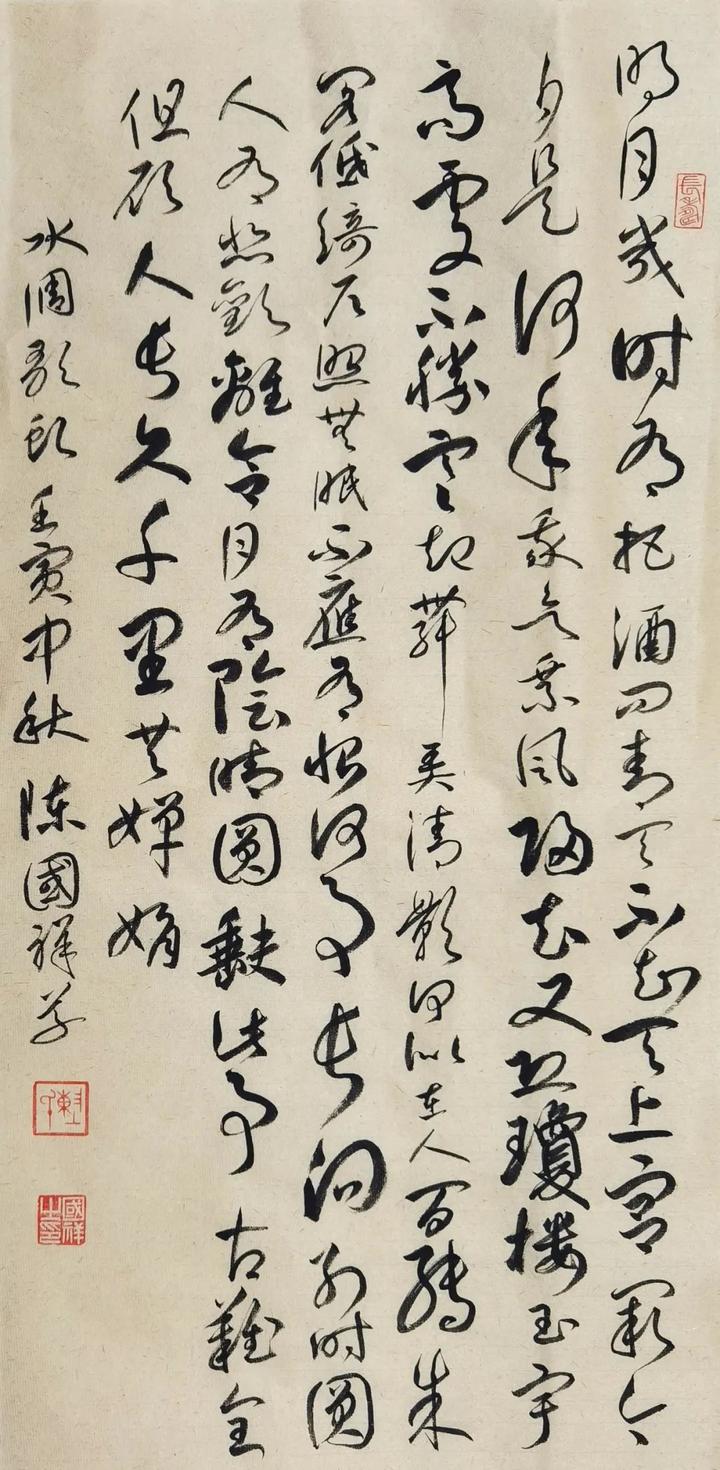 明月幾时有把酒问青天不知天上宫阙今
夕是何年我欲乘风歸去又恐瓊楼玉宇
高處不勝寒起舞弄清影何似在人间轉朱
阁低綺户照無眠不應有恨何事长向别时圆
人有悲歡離合月有陰晴圆缺此事古難全
但願人长久千里共嬋娟
水调歌头壬寅中秋陳國祥书
國祥之印